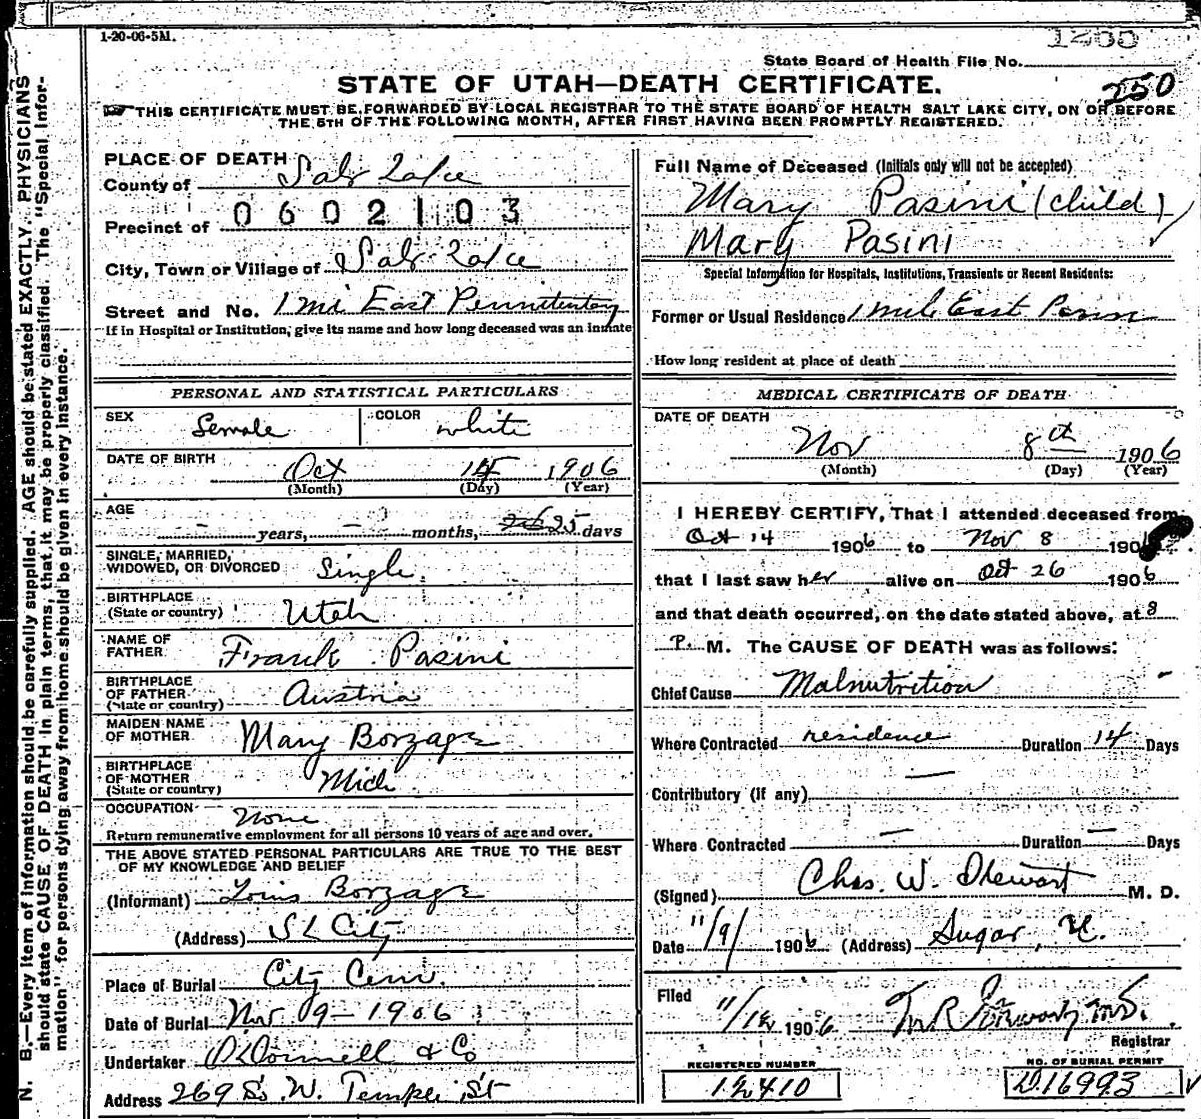 1-20-06-5M.
1260
State Board of Health File No.
STATE OF UTAH—DEATH CERTIFICATE.
250
THIS CERTIFICATE MUST BE FORWARDED BY LOCAL REGISTRAR TO THE STATE BOARD OF HEALTH SALT LAKE CITY, ON OR BEFORE
THE 5TH OF THE FOLLOWING MONTH, AFTER FIRST HAVING BEEN PROMPTLY REGISTERED.
N. B.—Every item of information should be carefully supplied. AGE should be stated EXACTLY. PHYSICIANS
should state CAUSE OF DEATH in plain terms, that it may be properly classified. The "Special Infor-
mation" for persons dying away from home should be given in every instance.
PLACE OF DEATH
County of Salt Lake
Precinct of 0602103
City, Town or Village of Salt Lake
Street and No. 1 mi East Pennitentary
If in Hospital or Institution, give its name and how long deceased was an inmate
PERSONAL AND STATISTICAL PARTICULARS
SEX Female COLOR white
DATE OF BIRTH Oct 14 1906
(Month) (Day) (Year)
AGE
– years, – months, 25 days
SINGLE, MARRIED,
WIDOWED, OR DIVORCED Single
BIRTHPLACE
(State or country) Utah
NAME OF
FATHER Frank Pasini
BIRTHPLACE
OF FATHER
(State or country) Austria
MAIDEN NAME
OF MOTHER Mary Borzage
BIRTHPLACE
OF MOTHER
(State or country) Mich
OCCUPATION None
Return remunerative employment for all persons 10 years of age and over.
THE ABOVE STATED PERSONAL PARTICULARS ARE TRUE TO THE BEST
OF MY KNOWLEDGE AND BELIEF
(Informant) Louis Borzage
(Address) S L City
Place of Burial City Cem.
Date of Burial Nov 9 – 1906
Undertaker O'Donnell & Co
Address 269 So. W. Temple St
Full Name of Deceased (Initials only will not be accepted)
Mary Pasini (child)
Mary Pasini
Special Information for Hospitals, Institutions, Transients or Recent Residents:
Former or Usual Residence 1 mile East
How long resident at place of death
MEDICAL CERTIFICATE OF DEATH
DATE OF DEATH
Nov 8th 1906
(Month) (Day) (Year)
I HEREBY CERTIFY, That I attended deceased from
Oct 14 1906 to Nov 8 190
that I last saw her alive on Oct 26 1906
and that death occurred, on the date stated above, at 8
P. M. The CAUSE OF DEATH was as follows:
Chief Cause Malnutrition
Where Contracted residence Duration 14 Days
Contributory (If any) —
Where Contracted — Duration — Days
(Signed) Chas. W. Stewart M. D.
Date 11/9/ 1906 (Address) Sugar, U.
Filed 11/12 1906 M.D.
Registrar
REGISTERED NUMBER
12410
NO. OF BURIAL PERMIT
D16993